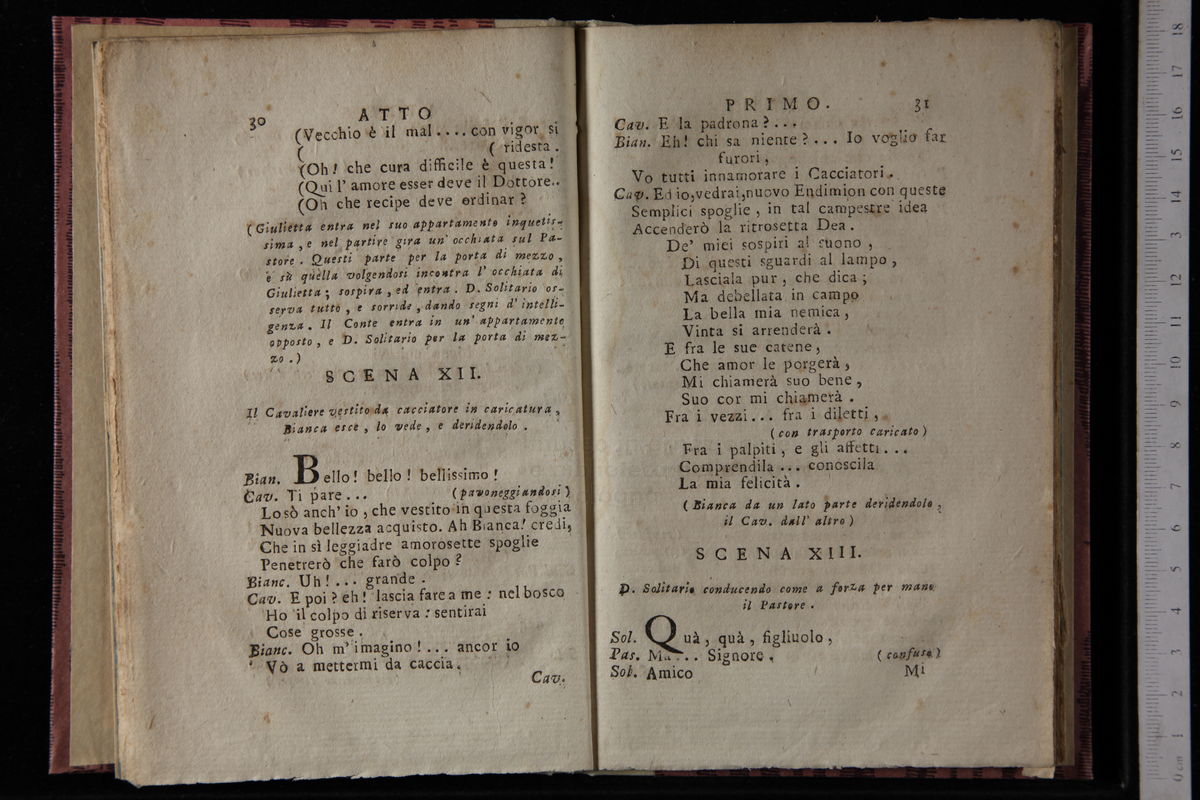 30
ATTO
(Vecchio è il mal.... con vigor si
( ( ridesta.
(Oh! che cura difficile è questa!
(Qui l' amore esser deve il Dottore..
(Oh che recipe deve ordinar?
(Giulietta entra nel suo appartamento inquetis-
sima, e nel partire gira un' occhiata sul Pa-
store. Questi parte per la porta di mezzo,
e sù quella volgendosi incontra l' occhiata di
Giulietta; sospira, ed entra. D. Solitario os-
serva tutto, e sorride, dando segni d' intelli-
genza. Il Conte entra in un' appartamento
opposto, e D. Solitario per la porta di mez-
zo.)
SCENA XII.
Il Cavaliere vestito da cacciatore in caricatura,
Bianca esce, lo vede, e deridendolo.
Bian. Bello! bello! bellissimo!
Cav. Ti pare... (pavoneggiandosi)
Lo sò anch' io, che vestito in questa foggia
Nuova bellezza acquisto. Ah Bianca! credi,
Che in sì leggiadre amorosette spoglie
Penetrerò che farò colpo?
Bianc. Uh!... grande.
Cav. E poi? eh! lascia fare a me: nel bosco
Ho il colpo di riserva: sentirai
Cose grosse.
Bianc. Oh m' imagino!... ancor io
Vò a mettermi da caccia.
Cav.
PRIMO. 31
Cav. E la padrona?...
Bian. Eh! chi sa niente?... Io voglio far
furori,
Vo tutti innamorare i Cacciatori.
Cav. Ed io, vedrai, nuovo Endimion con queste
Semplici spoglie, in tal campestre idea
Accenderò la ritrosetta Dea.
De' miei sospiri al suono,
Di questi sguardi al lampo,
Lasciala pur, che dica;
Ma debellata in campo
La bella mia nemica,
Vinta si arrenderà.
E fra le sue catene,
Che amor le porgerà,
Mi chiamerà suo bene,
Suo cor mi chiamerà.
Fra i vezzi... fra i diletti,
(con trasporto caricato)
Fra i palpiti, e gli affetti...
Comprendila... conoscila
La mia felicità.
(Bianca da un lato parte deridendolo,
il Cav. dall' altro)
SCENA XIII.
D. Solitario conducendo come a forza per mano
il Pastore.
Sol. Quà, quà, figliuolo,
Pas. Ma... Signore. (confuso)
Sol. Amico
Mi
0 cm 1 2 3 4 5 6 7 8 9 10 11 12 13 14 15 16 17 18